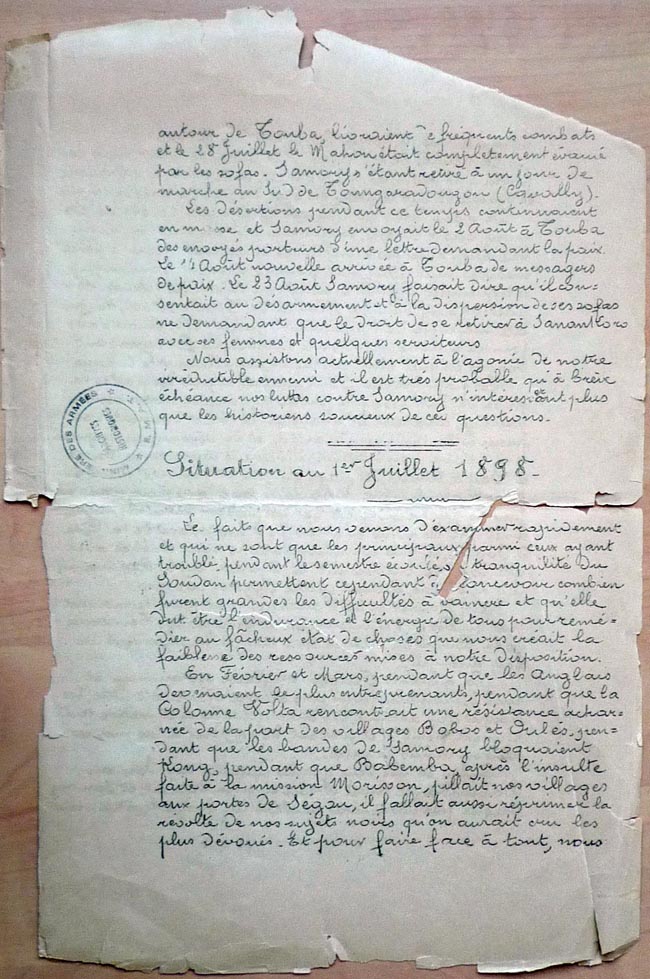 autour de Touba, livraient de fréquents combats
et le 28 Juillet le Mahon était complètement évacué
par les sofas. Samory s'étant retiré à un jour de
marche au Sud de Toungaradougou (Cavally).
Les désertions pendant ce temps continuaient
en masse et Samory envoyait le 2 Août à Touba
des envoyés porteurs d'une lettre demandant la paix.
Le 14 Août nouvelle arrivée à Touba de messagers
de paix. Le 23 Août Samory faisait dire qu'il con-
sentait au désarmement et à la dispersion de ses sofas
ne demandant que le droit de se retirer à Sanankoro
avec ses femmes et quelques serviteurs
Nous assistons actuellement à l'agonie de notre
irréductible ennemi et il est très probable qu'à brève
échéance nos luttes contre Samory n'intéresseront plus
que les historiens soucieux de ces questions.
MINISTÈRE DES ARMÉES
Situation au 1er Juillet 1898.
Les faits que nous venons d'examiner rapidement
et qui ne sont que les principaux parmi ceux ayant
troublé, pendant le semestre écoulé, la tranquilité du
Soudan permettent cependant de concevoir combien
furent grandes les difficultés à vaincre et qu'elle
dut être l'endurance et l'énergie de tous pour remé-
dier au fâcheux état de choses que nous créait la
faiblesse des ressources mises à notre disposition.
En Février et Mars, pendant que les Anglais
devenaient le plus entreprenants, pendant que la
Colonne Volta rencontrait une résistance achar-
née de la part des villages Bobos et Oulés, pen-
dant que les bandes de Samory bloquaient
Kong, pendant que Babemba, après l'insulte
faite à la mission Morisson, pillait nos villages
aux portes de Ségou, il fallait aussi réprimer la
révolte de nos sujets noirs qu'on aurait cru les
plus dévoués. Et pour faire face à tout, nous